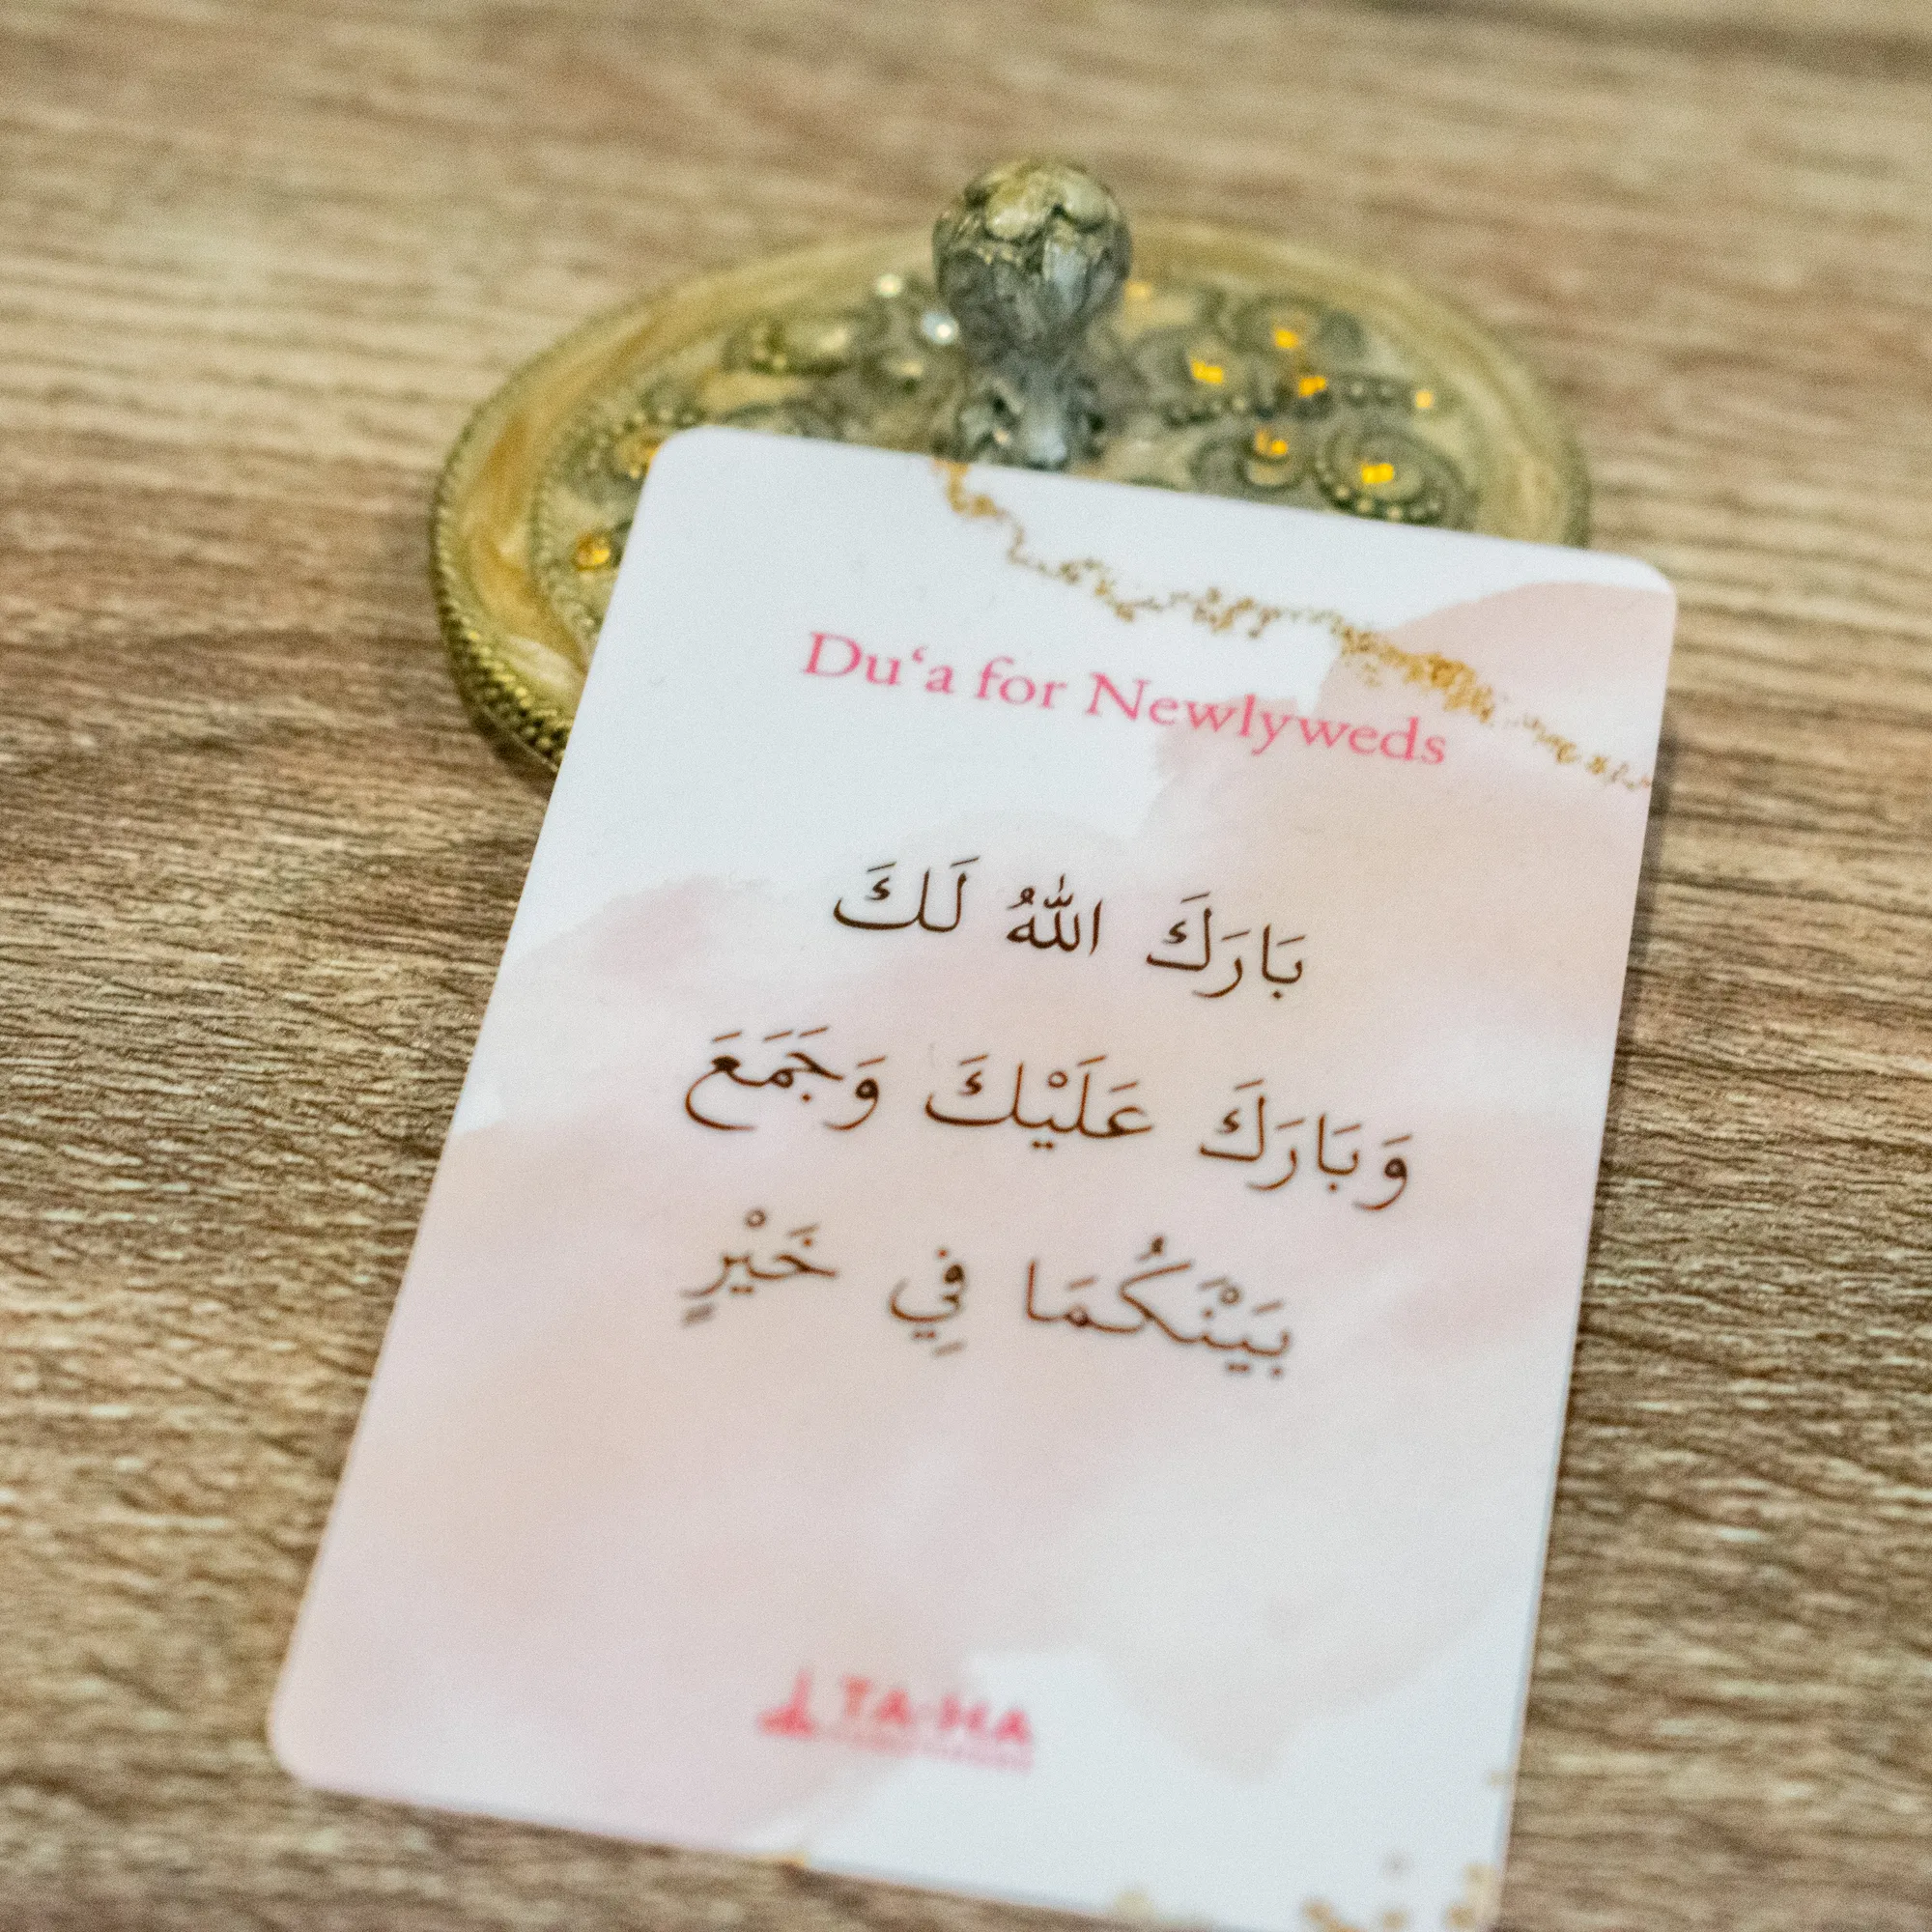 Du‘a for Newlyweds
بَارَكَ اللّٰهُ لَكَ
وَبَارَكَ عَلَيْكَ وَجَمَعَ
بَيْنَكُمَا فِي خَيْرٍ
TA-HA